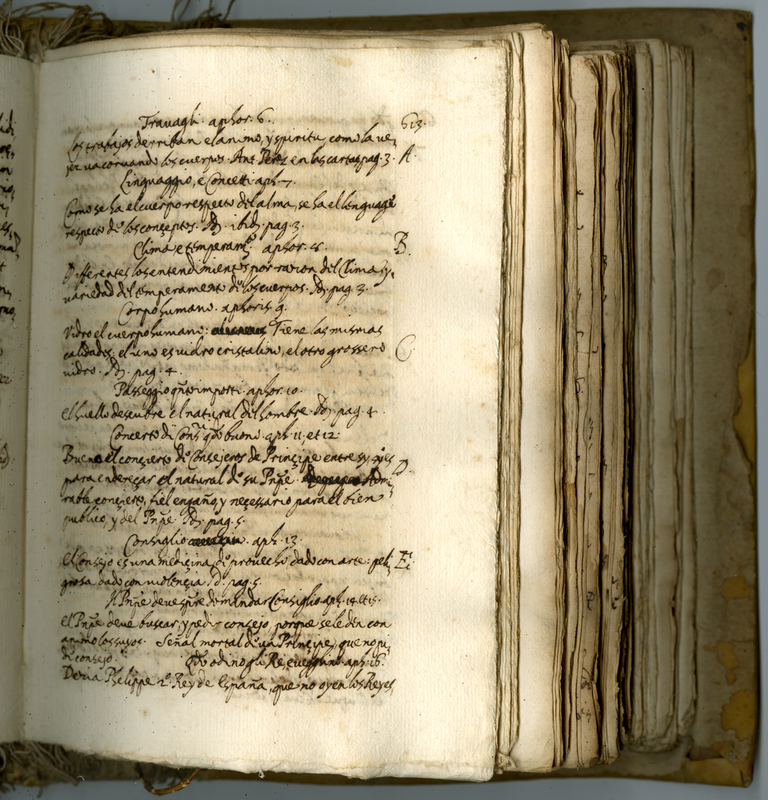 Travagli. aphor. 6. 613.
Los trabajos derriban el animo, y spiritu como la ve,
jez va corvando los cuerpos. Ant. Perez en las cartas pag. 3. A.
Linguaggio, e Concetti aph. 7.
Como se ha el cuerpo respecto del alma, se ha el lenguage
respecto d. los conceptos. ibid. pag. 3.
Clima e temperam.to aphor. 8. B.
Differentes los entendimientos por razon del Clima, y
variedad del temperamento d. los cuerpos. pag. 3.
Corpo humano. aphoris. 9.
Vidro el cuerpo humano: Tiene las mismas
calidades: el uno es vidro cristalino, el otro grossero C
vidro. pag. 4.
Passeggio q.nto importi. aphor. 10.
El huello descubre el natural del hombre. pag. 4.
Concerto di Cons.ri q.do buono. aph. 11, et 12.
Bueno el concierto d. Consejeros de Principe entre sy, q̃ es D.
para endereçar el natural d. su Prnp̃e. Admi,
rable concierto, fiel engaño, y necessario para el bien
publico, y del Prnp̃e. pag. 5.
Consiglio. aph. 13.
El Consejo es una medicina d. provecho dado con arte: peli, E.
grosa dado con violencia. pag. 5.
Il Prnp̃e deve s̃pre domandar Consiglio aph. 14. et 15.
El Prnp̃e deve buscar, y pedir consejo, porque se le den con
animo los suyos. Señal mortal d. un Principe, que no pi,
de consejo. Q.do odino gli Re e veggano aph. 16.
Dezia Phelippe 2.o Rey de España, que no oyen los Reyes